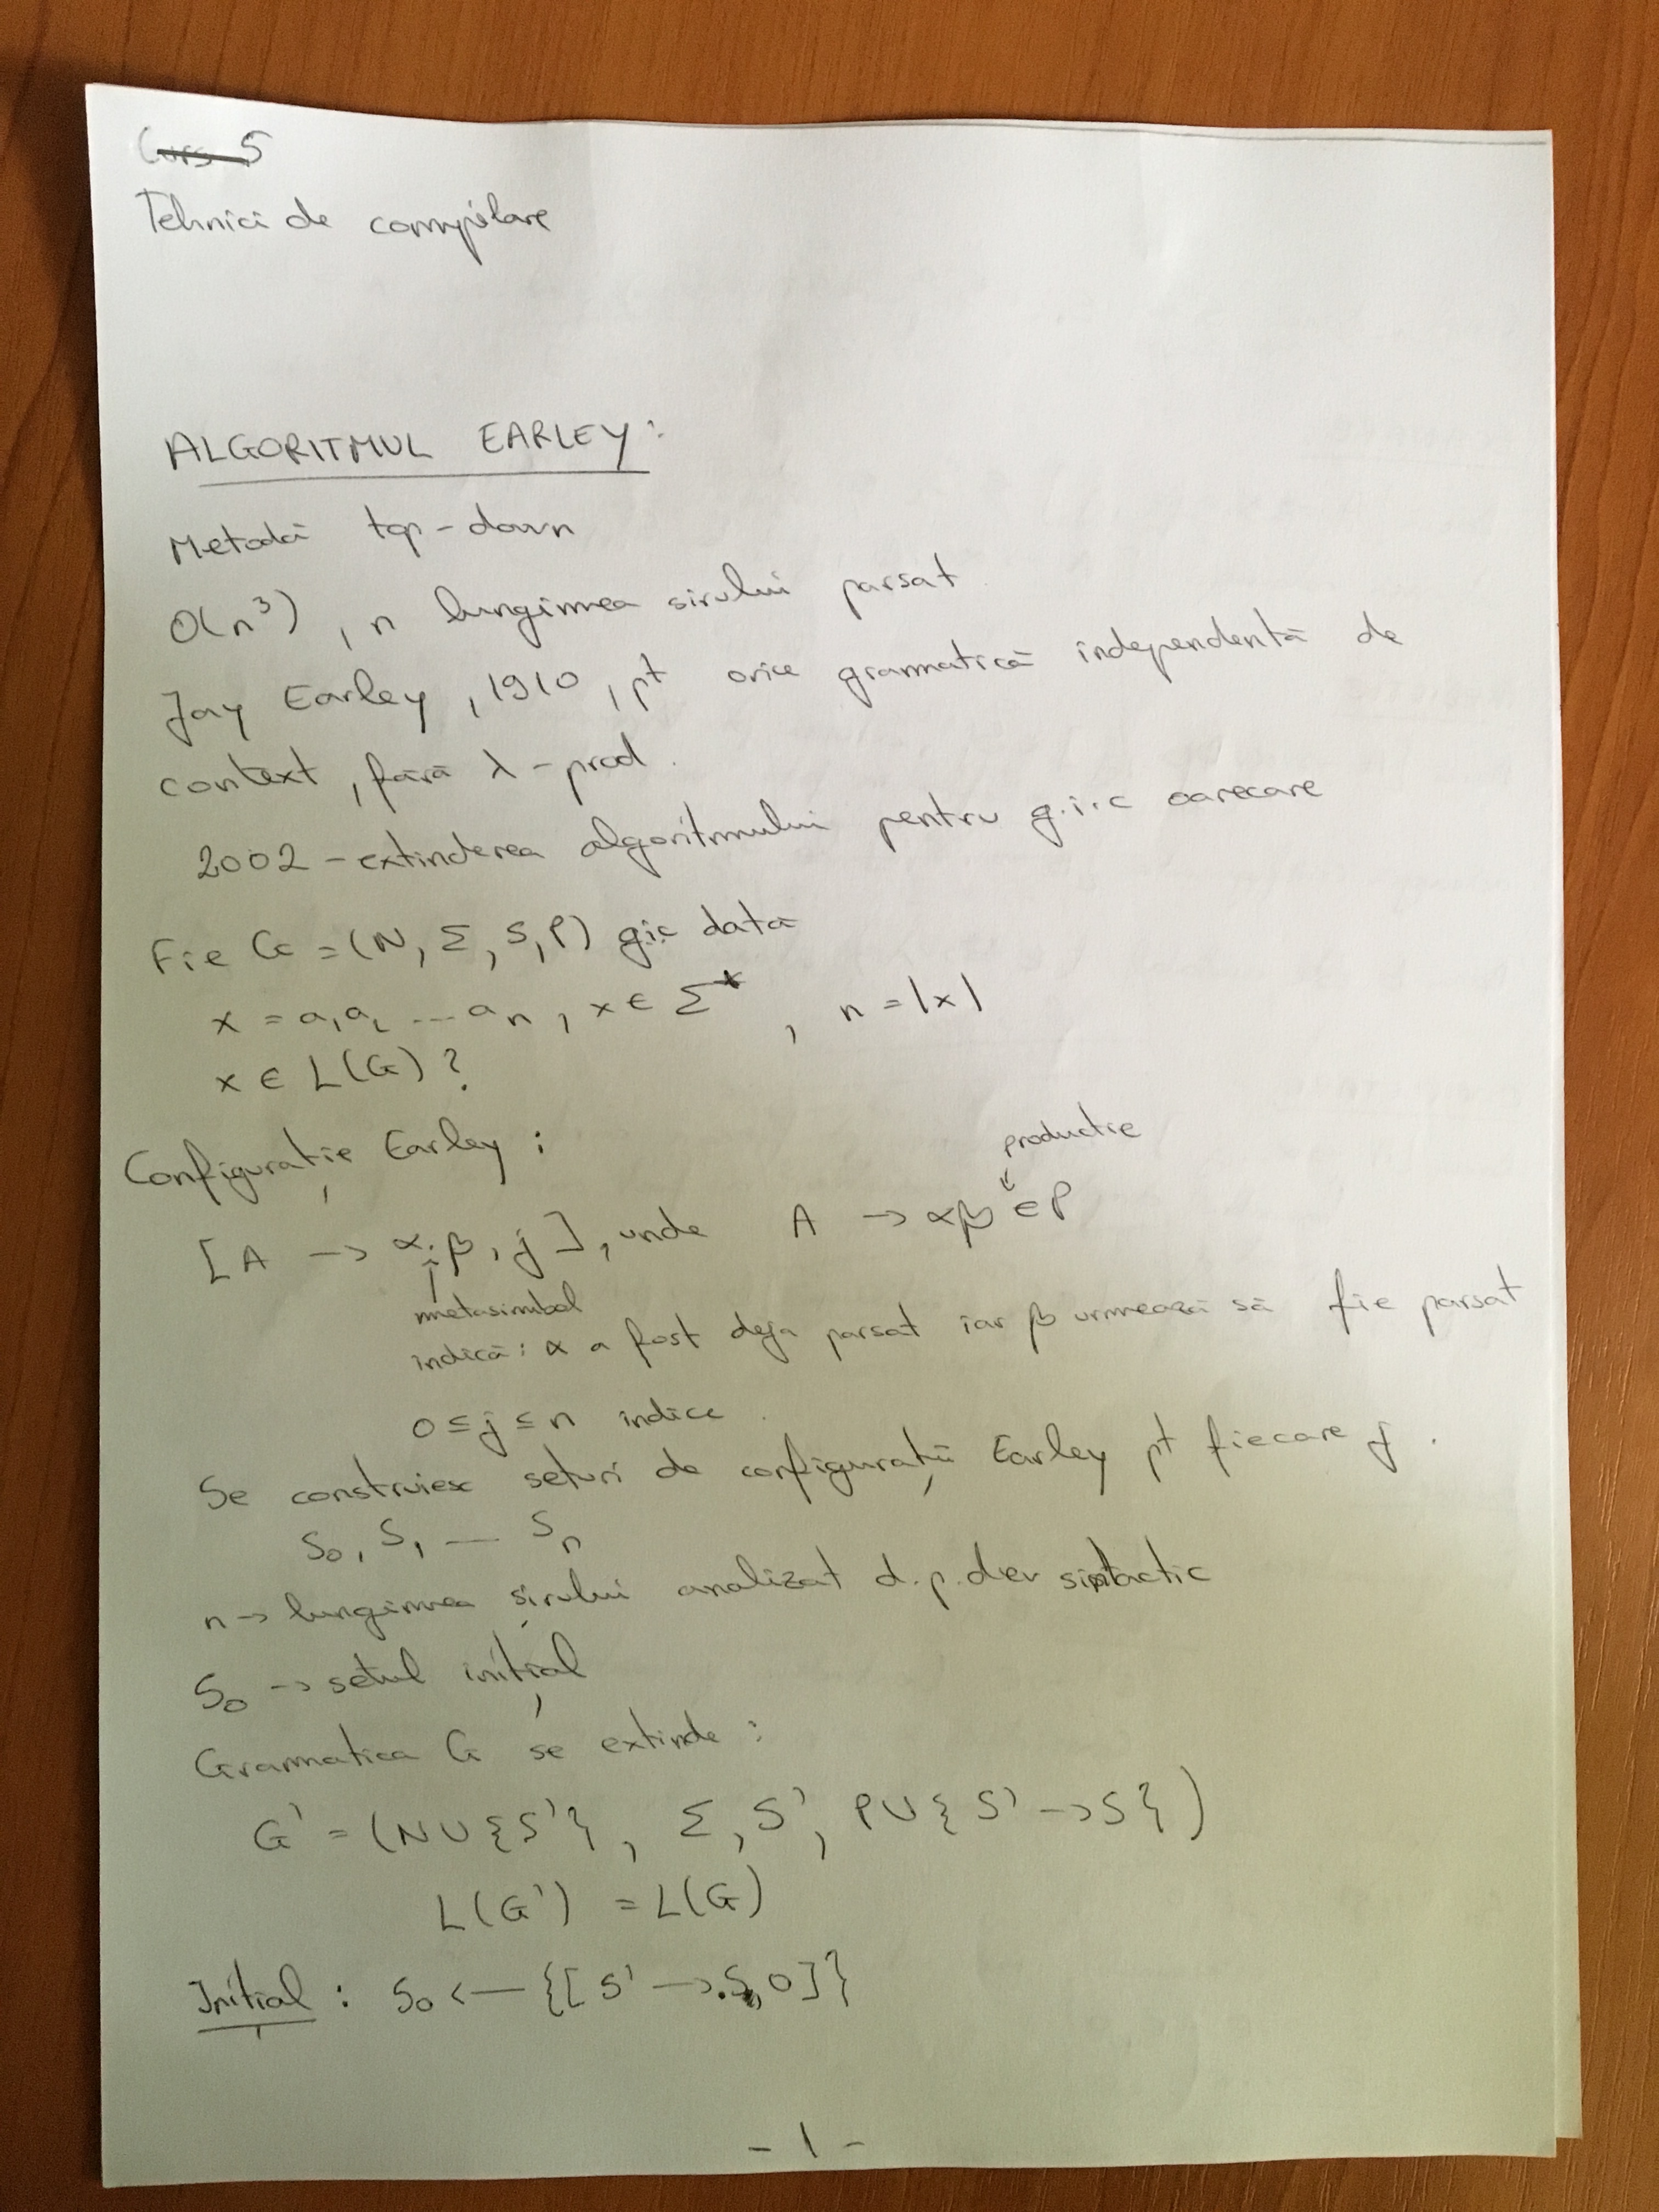 Curs 5
Tehnici de compilare
ALGORITMUL EARLEY:
Metodă top-down
O(n³), n lungimea sirului parsat
Jay Earley, 1910, pt orice gramatică independentă de
context, fără λ-prod.
2002 - extinderea algoritmului pentru g.i.c oarecare
Fie G = (N, Σ, S, P) g.i.c dată
x = a₁a₂ ... aₙ, x ∈ Σ*, n = |x|
x ∈ L(G)?
Configurație Earley:
productie
[A → α.β, j], unde A → αβ ∈ P
metasimbol
indică: α a fost deja parsat iar β urmează să fie parsat
0 ≤ j ≤ n indice.
Se construiesc seturi de configurații Earley pt fiecare j.
S₀, S₁ ... Sₙ
n → lungimea șirului analizat d.p.d.v sintactic
S₀ → setul inițial
Gramatica G se extinde:
G' = (N∪{S'}, Σ, S', P∪{S' → S})
L(G') = L(G)
Inițial: S₀ ← {[S' → .S, 0]}
- 1 -